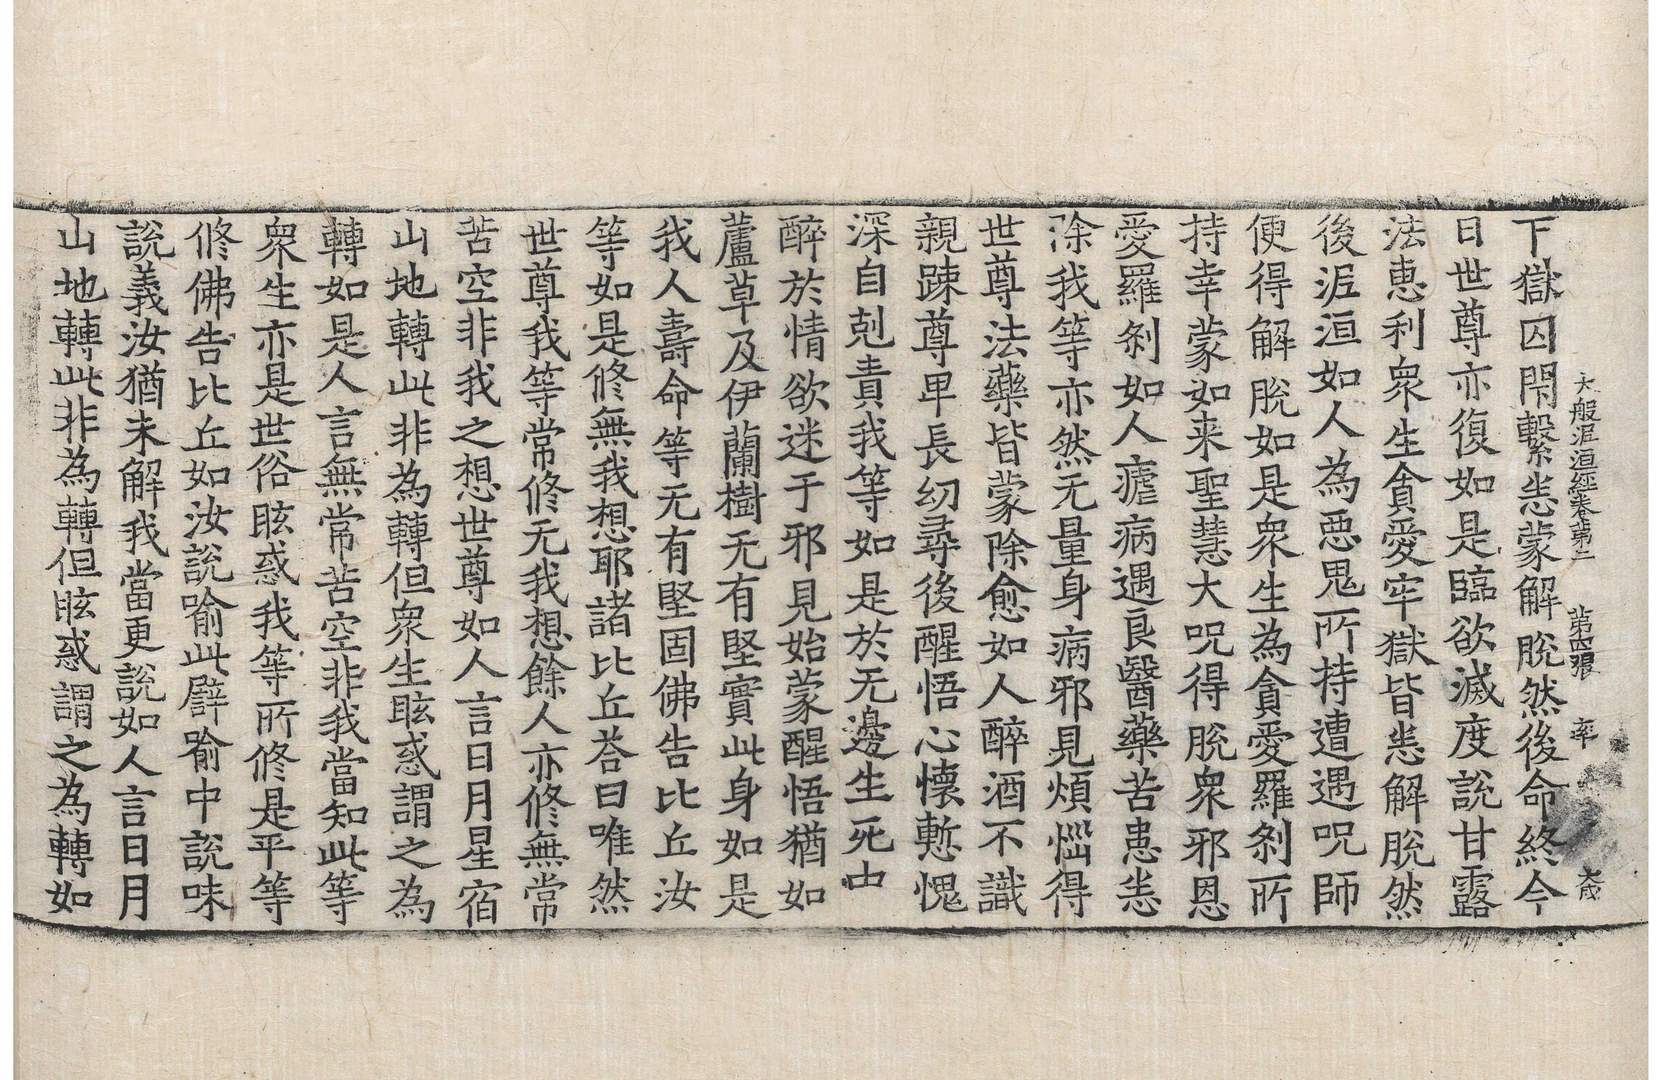 大般泥洹經卷第二 第四張 率
下獄囚閇繫恙蒙解脫然後命終今
日世尊亦復如是臨欲滅度說甘露
法惠利衆生貪愛牢獄皆恙解脫然
後泥洹如人為惡鬼所持遭遇呪師
便得解脫如是衆生為貪愛羅刹所
持幸蒙如来聖慧大呪得脫衆邪恩
愛羅刹如人瘧病遇良醫藥苦患恙
除我等亦然无量身病邪見煩惱得
世尊法藥皆蒙除愈如人醉酒不識
親踈尊卑長幼尋後醒悟心懷慙愧
深自剋責我等如是於无邊生死由
醉於情欲迷于邪見始蒙醒悟猶如
蘆草及伊蘭樹无有堅實此身如是
我人壽命等无有堅固佛告比丘汝
等如是修無我想耶諸比丘荅曰唯然
世尊我等常修无我想餘人亦修無常
苦空非我之想世尊如人言日月星宿
山地轉此非為轉但衆生眩惑謂之為
轉如是人言無常苦空非我當知此等
衆生亦是世俗眩惑我等所修是平等
修佛告比丘如汝說喻此譬喻中說味
說義汝猶未解我當更說如人言日月
山地轉此非為轉但眩惑謂之為轉如